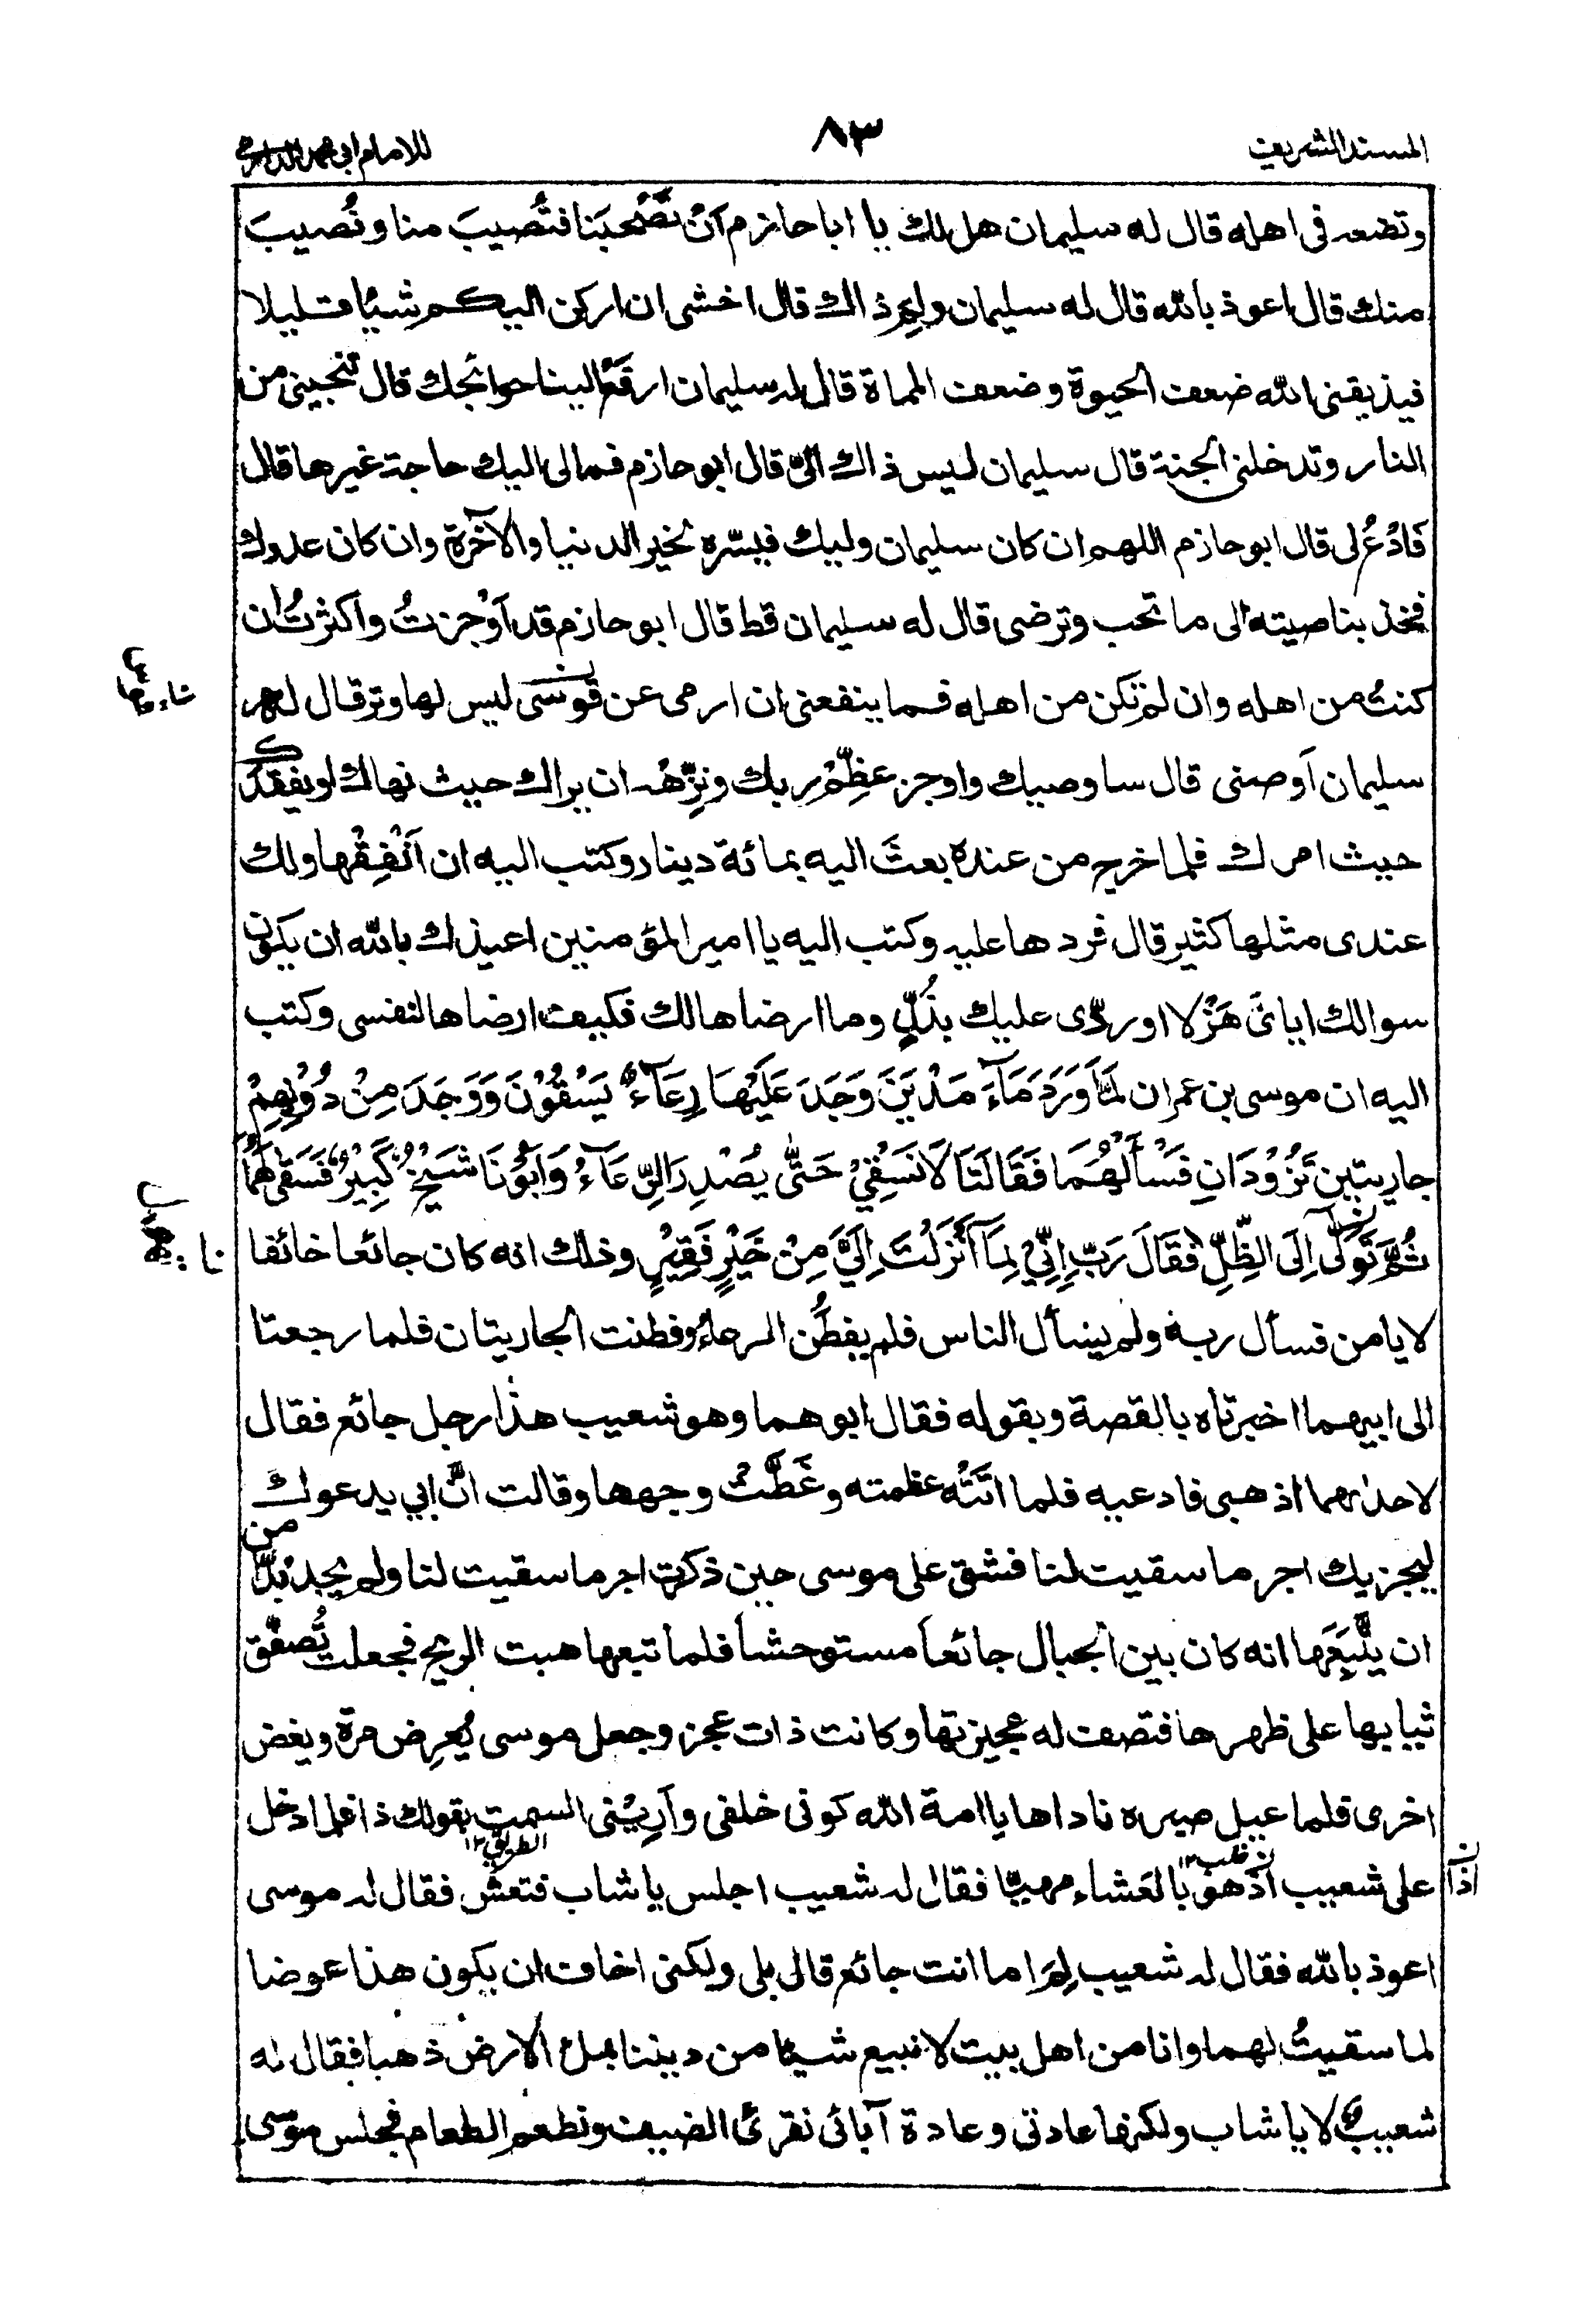 المسند الشريف ٨٣ للامام ابي محمد الدارمي
وتضعه فى اهله قال له سليمان هل لك يا ابا حازم اَنْ تَصْحبَنا فتُصيبَ منا ونُصيبَ
منك قال اعوذ بالله قال له سليمان ولِمَ ذاك قال اخشى ان اركن اليكم شيئا قليلا
فيذيقنى الله ضعف الحيوة وضعف المماة قال له سليمان ارفَعْ الينا حوائجك قال تنجينى من
النار وتدخلنى الجنة قال سليمان ليس ذاك الىّ قال ابو حازم فمالى اليك حاجة غيرها قال
فَادْعُ لى قال ابو حازم اللهم ان كان سليمان وليك فيسّره لخير الدنيا والآخرة وان كان عدوك
فخذ بناصيته الى ما تحب وترضى قال له سليمان قط قال ابو حازم قد اَوْجزتُ واكثرتُ ان
كنتَ من اهله وان لم تكن من اهله فما ينفعنى ان ارمى عن قوسى ليس لها وتر قال له
سليمان اَوصنى قال ساوصيك واوجز عظِّمْ ربك ونزِّهْه ان يراك حيث نهاك او يفقدك
حيث امرك فلما خرج من عنده بعثَ اليه بمائة دينار وكتب اليه ان اَنْفِقْها ولك
عندى مثلها كثير قال فردها عليه وكتب اليه يا امير المؤمنين اعيذك بالله ان يكون
سوالك اياىَ هَزْلا او ردّى عليك بذُلٍّ وما ارضاها لك فكيف ارضاها لنفسى وكتب
اليه ان موسى بن عمران لَمَّا وَرَدَ مَآءَ مَدْيَنَ وَجَدَ عَلَيْهَا رِعَآءً يَسْقُوْنَ وَوَجَدَ مِنْ دُوْنِهِمْ
جاريتين تَزُوْدَانِ فَسْأَلَهُمَا فَقَالَتَا لَا نَسْقِيْ حَتّٰى يُصْدِرَ الرِّعَآءُ وَاَبُوْنَا شَيْخٌ كَبِيْرٌ فَسَقٰى لَهُمَا
ثُمَّ تَوَلّٰى اِلَى الظِّلِّ فَقَالَ رَبِّ اِنِّيْ لِمَا اَنْزَلْتَ اِلَيَّ مِنْ خَيْرٍ فَقِيْرٍ وذلك انه كان جائعا خائفا
لا يامن فسأل ربه ولم يسأل الناس فلم يفطُن الرعاءُ وفطنت الجاريتان فلما رجعتا
الى ابيهما اخبرتاه بالقصة وبقوله فقال ابوهما وهو شعيب هذا رجل جائع فقال
لاحداهما اذهبى فادعيه فلما اتَتْه عظمته وغَطَّتْ وجهها وقالت انَّ ابي يدعوك
ليجزيك اجر ما سقيت لنا فشق على موسى حين ذكرت اجر ما سقيت لنا ولم يجد بُدّا من
ان يتْبَعَها انه كان بين الجبال جائعا مستوحشا فلما تبعها هبت الريح فجعلت تُصفّق
ثيابها على ظهرها فتصف له عجيزتها وكانت ذات عجز وجعل موسى يُعرِض مرة ويغض
اخرى فلما عيل صبره ناداها يا امة الله كونى خلفى وأرِيْنى السمت بقولك ذا فلما دخل
الطريق ١٢
على شعيب اذ هو بالعَشاء مهيّا فقال له شعيب اجلس يا شاب فتعشّ فقال له موسى
اذا
اعوذ بالله فقال له شعيب لِمَ اما انت جائع قال بلى ولكنى اخاف ان يكون هذا عوضا
لما سقيتُ لهما وانا من اهل بيت لا نبيع شيئا من ديننا بملء الارض ذهبا فقال له
شعيب لا يا شاب ولكنها عادتى وعادة آبائى نقرئ الضيف ونطعم الطعام فجلس موسى